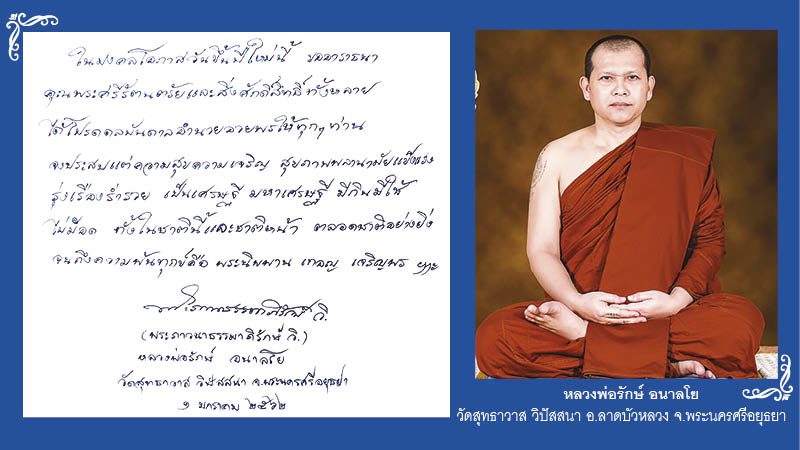 ในมงคลโอกาสวันขึ้นปีใหม่นี้ ขออาราธนา
คุณพระศรีรัตนตรัยและสิ่งศักดิ์สิทธิ์ทั้งหลาย
ได้โปรดดลบันดาลอำนวยอวยพรให้ทุกๆท่าน
จงประสบแต่ความสุขความเจริญ สุขภาพพลานามัยแข็งแรง
รุ่งเรืองร่ำรวย เป็นเศรษฐี มหาเศรษฐี มีกินมีใช้
ไม่มีอด ทั้งในชาตินี้และชาติหน้า ตลอดชาติอย่างยิ่ง
จนถึงความพ้นทุกข์คือ พระนิพพาน เทอญ เจริญพร
(พระภาวนาธรรมาภิรักษ์ วิ.)
หลวงพ่อรักษ์ อนาลโย
วัดสุทธาวาส วิปัสสนา จ.พระนครศรีอยุธยา
๑ มกราคม ๒๕๖๒
หลวงพ่อรักษ์ อนาลโย
วัดสุทธาวาส วิปัสสนา อ.ลาดบัวหลวง จ.พระนครศรีอยุธยา